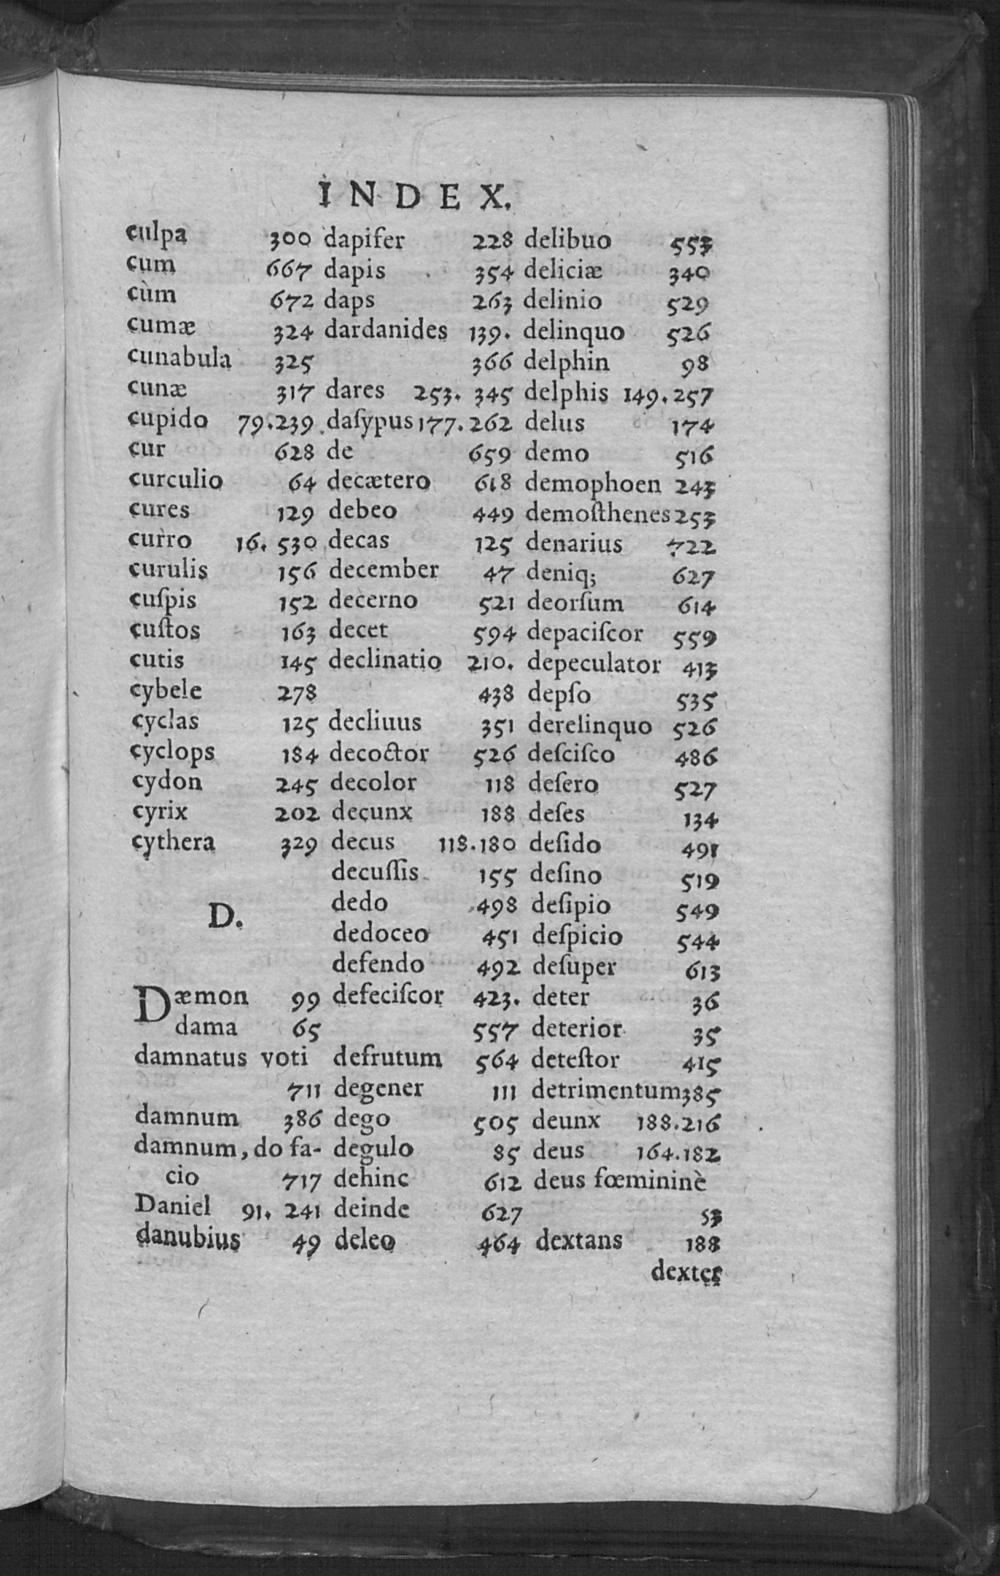 INDEX.
culpa 300
cum 667
cùm 672
cumæ 324
cunabula 325
cunæ 317
cupido 79.239
cur 628
curculio 64
cures 129
curro 16. 530
curulis 156
cuſpis 152
cuſtos 163
cutis 145
cybele 278
cyclas 125
cyclops 184
cydon 245
cyrix 202
cythera 329
D.
Dæmon 99
dama 65
damnatus voti
711
damnum 386
damnum, do fa-
cio 717
Daniel 91. 241
danubius 49
dapifer 228
dapis 354
daps 263
dardanides 139.
366
dares 253. 345
daſypus 177.262
de 659
decætero 618
debeo 449
decas 125
december 47
decerno 521
decet 594
declinatio 210.
438
decliuus 351
decoctor 526
decolor 118
decunx 188
decus 118.180
decuſſis 155
dedo 498
dedoceo 451
defendo 492
defeciſcor 423.
557
defrutum 564
degener 111
dego 505
degulo 85
dehinc 612
deinde 627
deleo 464
delibuo 553
deliciæ 340
delinio 529
delinquo 526
delphin 98
delphis 149.257
delus 174
demo 516
demophoen 243
demoſthenes 253
denarius 722
deniq; 627
deorſum 614
depaciſcor 559
depeculator 413
depſo 535
derelinquo 526
deſciſco 486
deſero 527
deſes 134
deſido 491
deſino 519
deſipio 549
deſpicio 544
deſuper 613
deter 36
deterior 35
deteſtor 415
detrimentum 385
deunx 188.216
deus 164.182
deus fœmininè
53
dextans 188
dexter